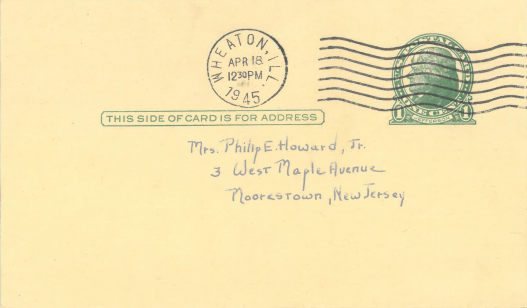 WHEATON, ILL.
APR 18
12 30 PM
1945
THIS SIDE OF CARD IS FOR ADDRESS
1 1
Mrs. Philip E. Howard, Jr.
3 West Maple Avenue
Moorestown, New Jersey